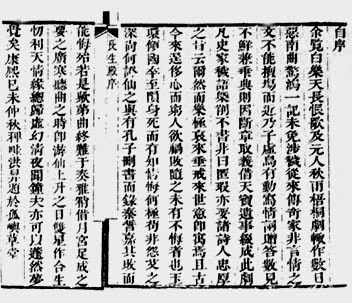 自序
余覽白樂天長恨歌及元人秋雨梧桐劇輒作數日
惡南曲驚鴻一記未免涉穢從來傳奇家非言情之
文不能擅場而近乃子虛烏有動寫情詞贈答數見
不鮮兼乖典則因斷章取義借天寶遺事綴成此劇
凡史家穢語概削不書非曰匿瑕亦要諸詩人忠厚
之旨云爾然而樂極哀來垂戒來世意即寓焉且古
今來逞侈心而窮人欲禍敗隨之未有不悔者也玉
環傾國卒至隕身死而有知情悔何極苟非怨艾之
深尚何證仙之與有孔子刪書而錄秦誓嘉其敗而
長生殿序
能悔殆若是歟第曲終難於奏雅稍借月宮足成之
要之廣寒聽曲之時即游仙上升之日雙星作合生
忉利天情緣總歸虛幻清夜聞鐘夫亦可以蘧然夢
覺矣康熙己未仲秋稗畦洪昇題於孤嶼草堂